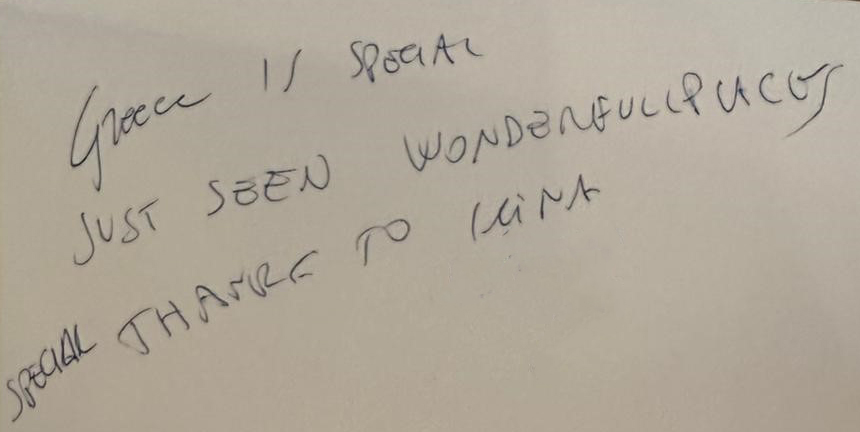 Greece IS SPECIAL
JUST SEEN WONDERFULL PLACES
SPECIAL THANKS TO